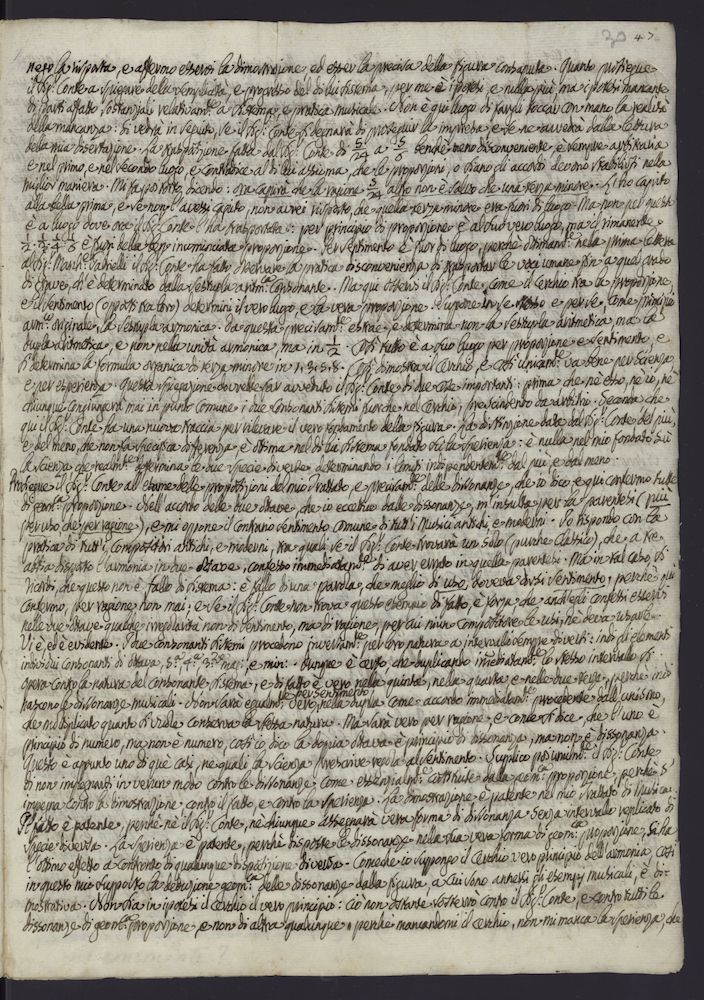 20 47
nero la risposta, e affermo essersi la dimostrazione, ed esser la precisa della figura consaputa. Quanto prosiegue
il Sig.r Conte a spiegare della semplicità, e progresso del di lui sistema, per me è ipotesi, e nulla più, ma ipotesi mancante
di parti affatto sostanziali relativam.te a sistema, e pratica musicale. Non è qui luogo di fargli toccar con mano la realità
della mancanza: si vedrà in seguito, se il Sig.r Conte si degnarà di proseguir la impresa, e se ne avvedrà dalla lettura
della mia dissertazione. La trasposizione fatta dal Sig.r Conte di 5/24 a 5/6 benchè meno disconveniente, è sempre arbitraria
e nel primo, e nel secondo luogo, e contradice al di lui assioma, che le proporzioni, o siano gli accordi devono stabilirsi nella
miglior maniera. Mi fa poi torto, dicendo: ora capirà che la ragione 5/24 altro non è salvo che una terza minore. Si l'ho capito
alla bella prima, e se non l'avessi capito, non avrei risposto, che quella terza minore era fuori di luogo. Ma non nel quesito
è a luogo dove ora il Sig.r Conte l'ha trasportata: per principio di proporzione è al suo vero luogo, ma il rimanente
è fuori della incominciata proporzione. Per sentimento è fuor di luogo, perchè ottimam.te nella prima lettera
al Sig.r March.e Gabrielli il Sig.r Conte ha fatto osservare la pratica disconvenienza di trasportar le voci umane fin a quel grado
di grave, ch'è determinato dalla sestupla aritm.ca consonante. Ma qui osservi il Sig.r Conte, come il Cerchio tra la proporzione,
e il sentimento (opposti tra loro) determini il vero luogo, e la vera proporzione. Suppone in se stesso e per se, come principio
arm.co originale la sestupla armonica. Da questa precisam.te estrae, e determina non la sestupla aritmetica, ma la
dupla aritmetica, e non nella unità armonica, ma in 1/2. Così tutto è a suo luogo per proporzione e sentimento, e
si determina la formula organica di terza minore in . Così dimostra il Cerchio, e così unicam.te va bene per scienza,
e per esperienza. Questa spiegazione dovrebbe far avvertito il Sig.r Conte di due cose importanti: prima che nè esso, nè io, nè
chiunque congiungerà mai in punto comune i due consonanti sistemi fuorchè nel Cerchio, prescindendo da arbitrii. Seconda che
qui il Sig.r Conte ha una nuova traccia per rilevare il vero fondamento della figura. La distinzione data dal Sig.r Conte del più,
e del meno, che non fa specifica differenza, è ottima nel di lui sistema fondato su la sperienza: è nulla nel mio fondato su
la scienza, che realm.te determina le due specie diverse determinando i limiti indipendentem.te dal più, e dal meno.
Prosiegue il Sig.r Conte all'esame delle proposizioni del mio Trattato, e precisam.te delle dissonanze, che io dico, e qui confermo tutte
di geom.ca proporzione. Nell'accordo delle due ottave, che io eccettuo dalle dissonanze, m'insulta per la parentesi (più
per uso che per ragione), e mi oppone il contrario sentimento comune di tutti i Musici antichi, e moderni. Io rispondo con la
pratica di tutti i Compositori antichi, e moderni, tra quali se il Sig.r Conte trovarà un solo (purchè classico), che a tre
abbia disposto l'armonia in due ottave, confesso immediatam.te di aver errato in quella parentesi. Ma in tal caso si
ricordi, che questo non è fallo di sistema: è fallo di una parola, che meglio di uso, doveva dirsi sentimento, perchè più
confermo, per ragione non mai; e se il Sig.r Conte non trova questo esempio di fatto, è forza che anch'egli confessi esservi
nelle due ottave qualche irregolarità non di sentimento, ma di ragione, per cui niun Compositore le usi, nè deve usarle.
Vi è, ed è evidente. I due consonanti sistemi procedono inversam.te per loro natura a intervalli sempre diversi: indi gli elementi
individui consonanti di ottava, 5.a 4.a 3.za mag: e min: Dunque è certo, che duplicando immediatam.te lo stesso intervallo si
opera contro la natura del consonante sistema, e di fatto è vero nella quinta, nella quarta, e nelle due terze, perchè indi
nascono le dissonanze musicali. Non sarà egualm.te vero per sentimento nella dupla come accordo immediatam.te procedente dall'unisono,
che moltiplicato quanto si vuole conserva la stessa natura. Ma sarà vero per ragione, e come si dice, che l'uno è
principio di numero, ma non è numero, così io dico la doppia ottava è principio di dissonanza, ma non è dissonanza.
Questo è appunto uno di que' casi, ne quali la scienza prescrive regola al sentimento. Supplico poi umilm.te il Sig.r Conte
di non impegnarsi in verun modo contro le dissonanze come essenzialm.te costituite dalla geom.ca proporzione, perchè s'
impegna contro la dimostrazione, contro il fatto, e contro la sperienza. La dimostrazione è patente nel mio Trattato di Musica.
Il fatto è patente, perchè nè il Sig.r Conte, nè chiunque assegnarà vera forma di dissonanza senza intervallo replicato di
specie diversa. La sperienza è patente, perchè disposte le dissonanze nella sua vera forma di geom.ca proporzione, si ha
l'ottimo effetto a confronto di qualunque disposizione diversa. Come che io suppongo il Cerchio vero principio dell'armonia, così
in questo mio supposto la deduzione geom.ca delle dissonanze dalla figura, a cui sono annessi gli esempj musicali, è di-
mostrativa. Non sia in ipotesi il Cerchio il vero principio: ciò non ostante sosterrò contro il Sig.r Conte, e contro tutti le
dissonanze di geom.ca proporzione, e non di altra qualunque, perchè mancandomi il Cerchio, non mi manca la sperienza, che